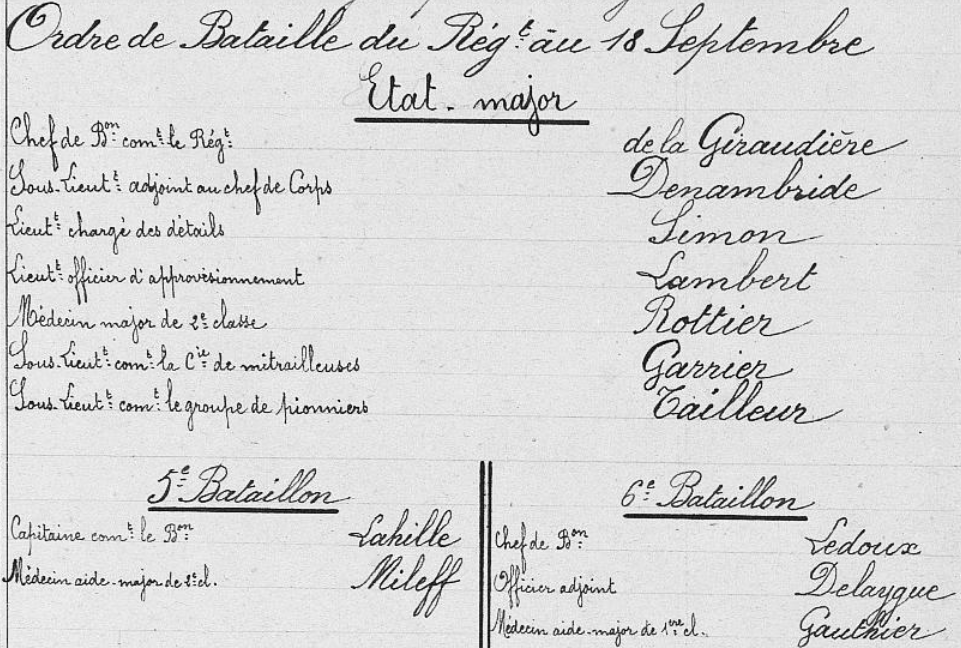 Ordre de Bataille du Rég.t au 18 Septembre
Etat-major
Chef de B.on com.t le Rég.t de la Giraudière
Sous-Lieut.t adjoint au chef de Corps Denambride
Lieut.t chargé des détails Simon
Lieut.t officier d'approvisionnement Lambert
Médecin major de 2e classe Rottier
Sous-Lieut.t com.t la C.ie de mitrailleuses Garrier
Sous-Lieut.t com.t le groupe de pionniers Tailleur
5e Bataillon
Capitaine com.t le B.on Lahille
Médecin aide-major de 2e cl. Mileff
6e Bataillon
Chef de B.on Ledoux
Officier adjoint Delaygue
Médecin aide-major de 1ère cl. Gauthier